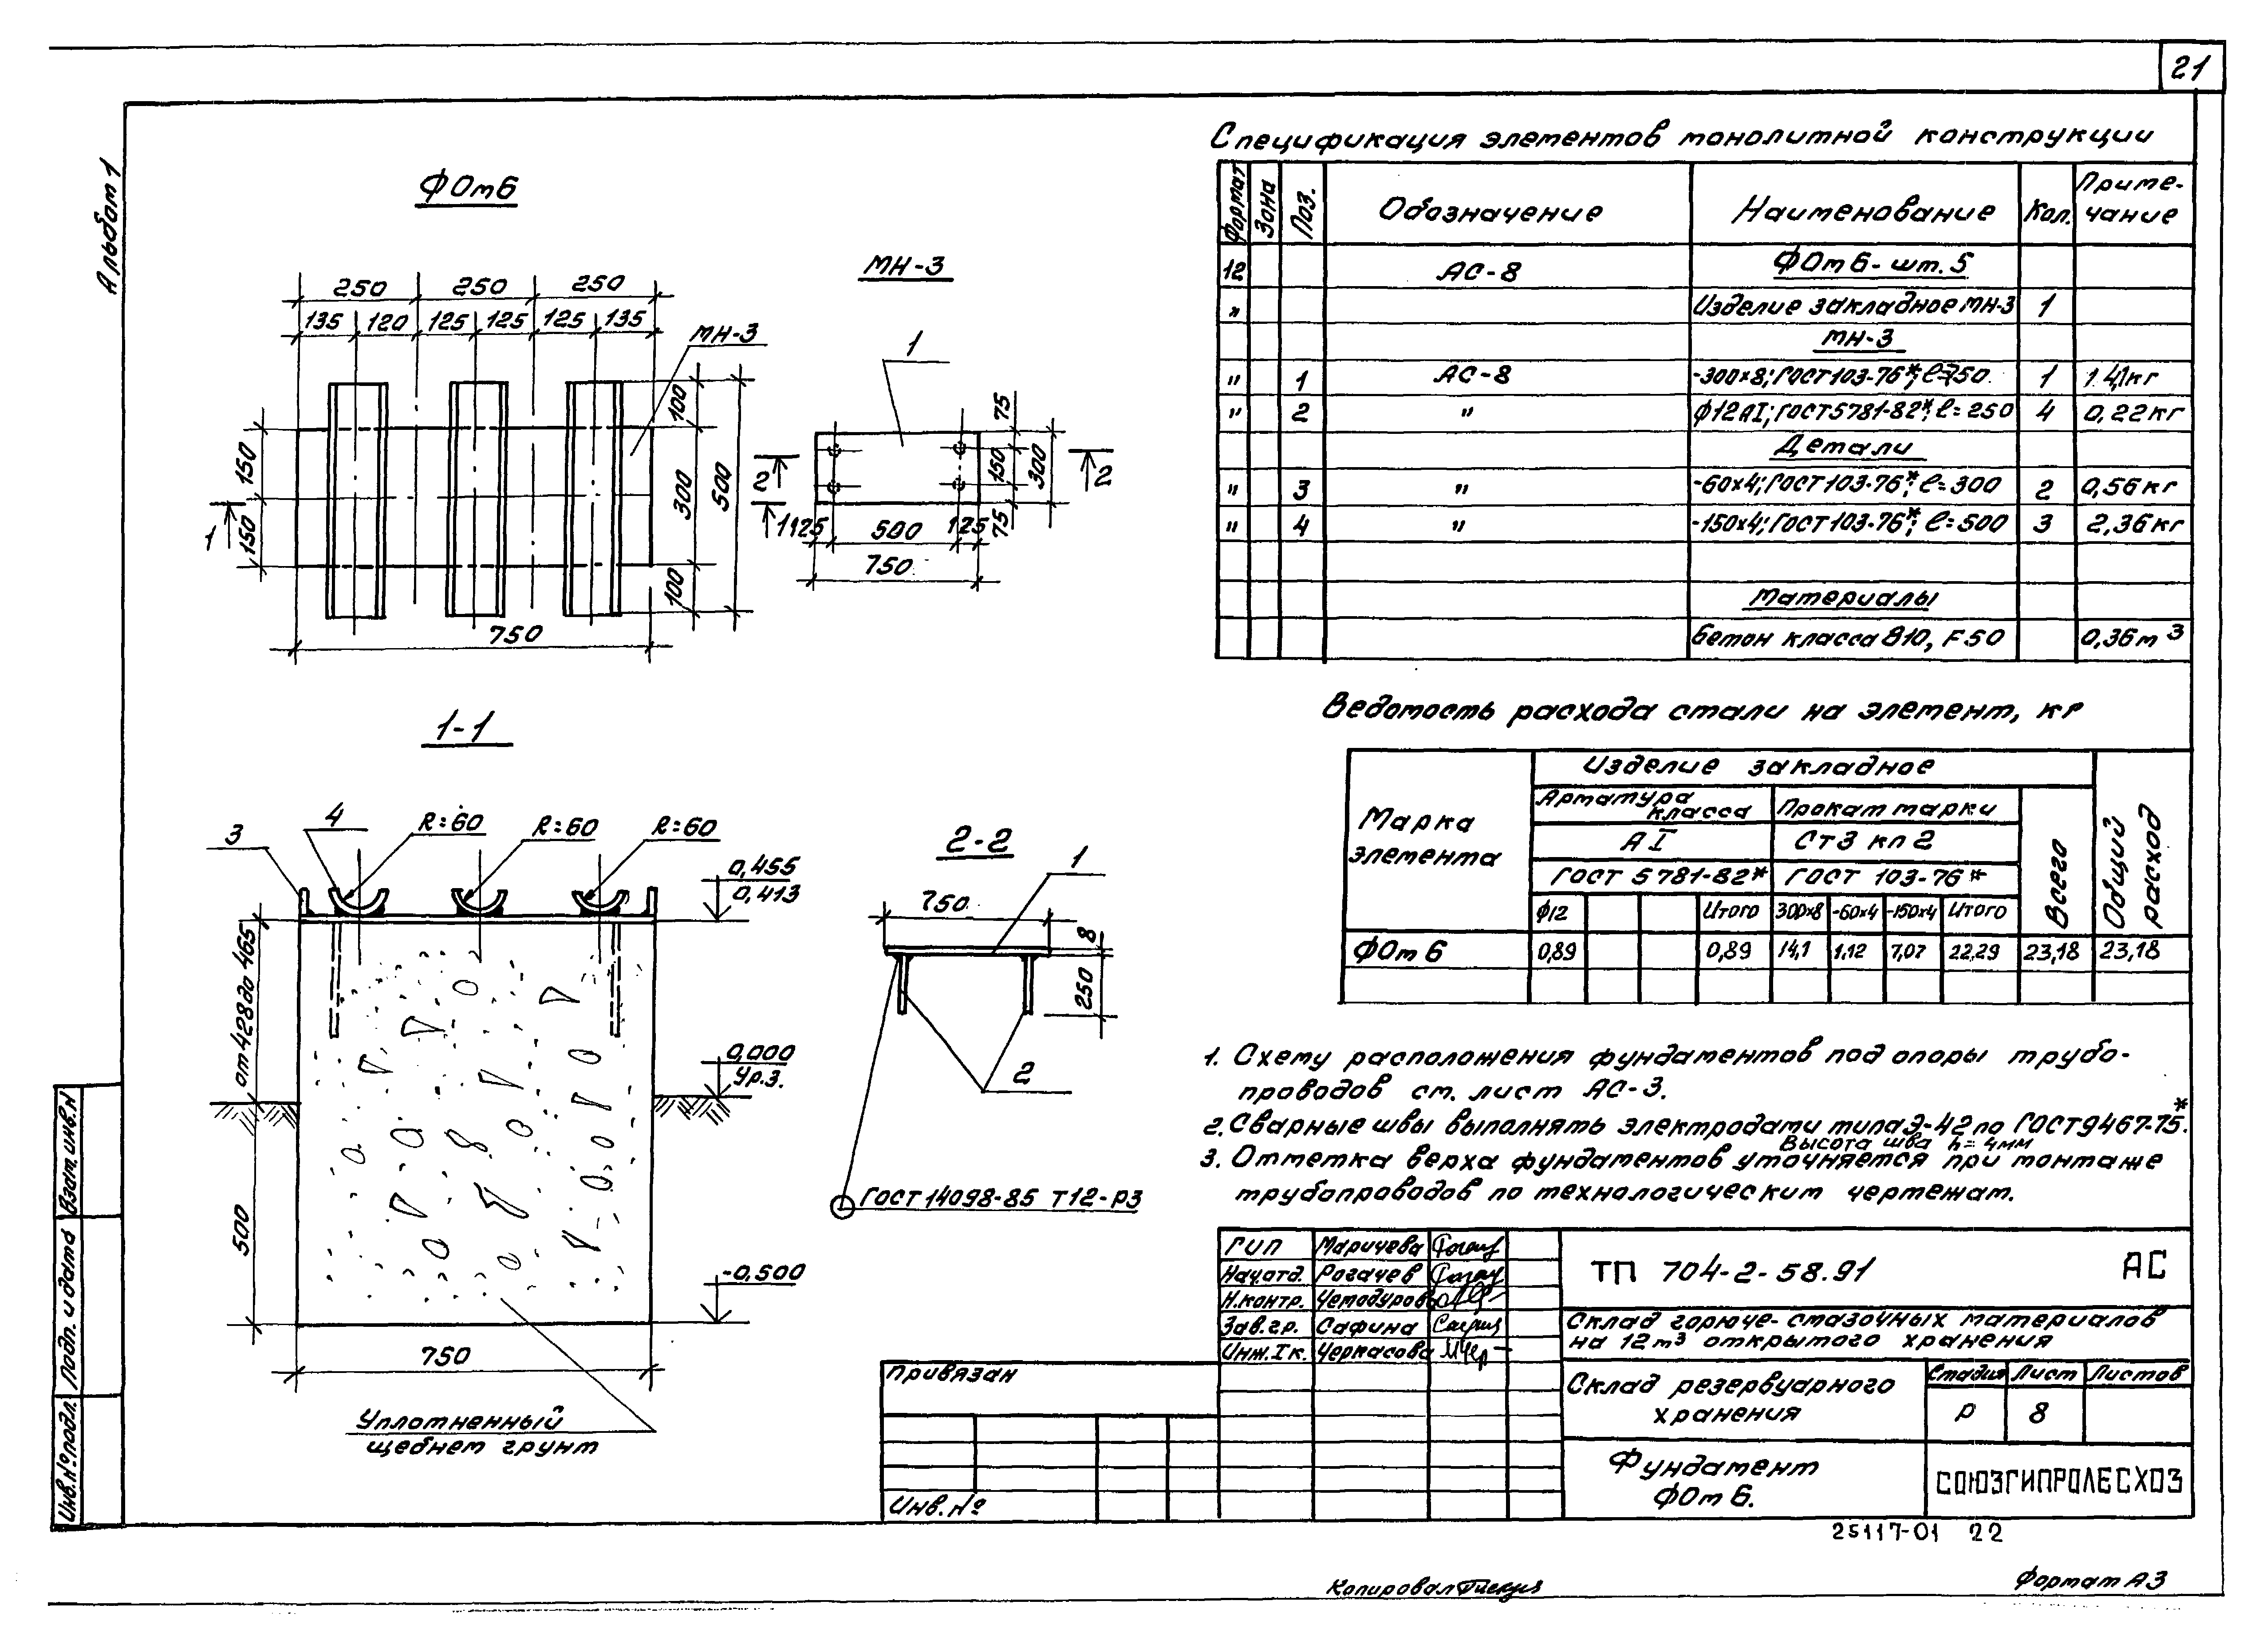 21
Альбом 1
ФОм6
250 250 250
135 120 125 125 125 135
МН-3
100
300
500
100
150
150
1
750
МН-3
1
2
2
75
150
300
75
1
125 500 125
750
Спецификация элементов монолитной конструкции
Формат Зона Поз. Обозначение Наименование Кол. Приме-
чание
12 АС-8 ФОм6-шт.5
" Изделие закладное МН-3 1
МН-3
" 1 АС-8 -300×8; ГОСТ 103-76*; ℓ=750 1 14,1кг
" 2 " ф12АI; ГОСТ 5781-82*; ℓ=250 4 0,22кг
Детали
" 3 " -60×4; ГОСТ 103-76*; ℓ=300 2 0,56кг
" 4 " -150×4; ГОСТ 103-76*; ℓ=500 3 2,36кг
Материалы
Бетон класса В10, F50 0,36м³
Ведомость расхода стали на элемент, кг
Марка
элемента
Изделие закладное
Арматура
класса
Прокат марки
А I Ст3 кп2
ГОСТ 5781-82* ГОСТ 103-76*
ф12 Итого 300×8 -60×4 -150×4 Итого
Всего
Общий
расход
ФОм 6 0,89 0,89 14,1 1,12 7,07 22,29 23,18 23,18
1-1
3
4
R=60 R=60 R=60
0,455
0,413
от 428 до 465
0,000
Ур.з.
500
-0,500
750
Уплотненный
щебнем грунт
2-2
1
750
8
250
2
ГОСТ 14098-85 Т12-Р3
1. Схему расположения фундаментов под опоры трубо-
проводов см. лист АС-3.
2. Сварные швы выполнять электродами типа Э-42 по ГОСТ 9467-75*.
Высота шва h=4мм
3. Отметка верха фундаментов уточняется при монтаже
трубопроводов по технологическим чертежам.
ГИП Маричева
Нач.отд. Рогачев
Н.контр. Чемодурова
Зав.гр. Сафина
Инж.Iк. Черкасова
ТП 704-2-58.91 АС
Склад горюче-смазочных материалов
на 12м³ открытого хранения
Склад резервуарного
хранения
Стадия Лист Листов
Р 8
Фундамент
ФОм 6.
СОЮЗГИПРОЛЕСХОЗ
Привязан
Инв.№
Взам.инв.№
Подп. и дата
Инв.№ подл.
25117-01 22
Копировал
Формат А3